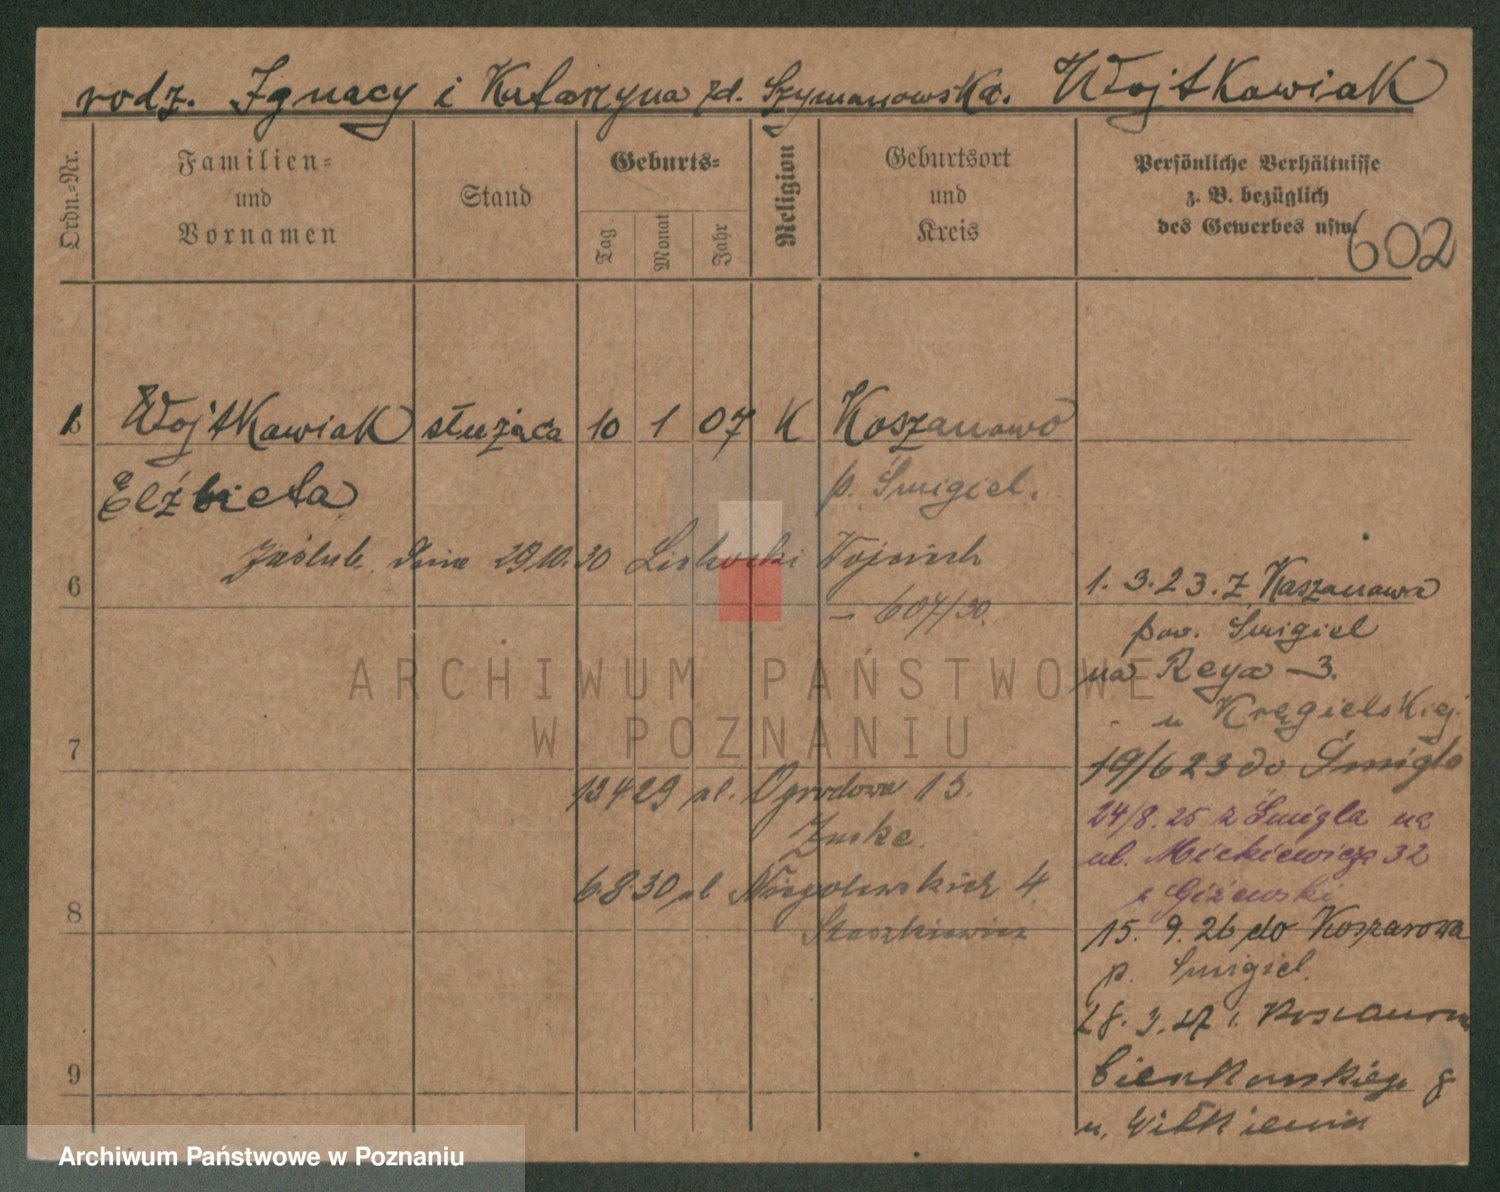 rodz. Ignacy i Katarzyna zd. Szymanowska. Wojtkowiak
Ordn.-Nr.
Familien-
und
Vornamen
Stand
Geburts-
Tag
Monat
Jahr
Religion
Geburtsort
und
Kreis
Persönliche Verhältnisse
z. B. bezüglich
des Gewerbes usw.
602
Wojtkowiak służąca 10 1 07 K Koszanowo
Elżbieta
p. Śmigiel.
Zaślub. dnia 29.10.30
— 607/30.
6
1.3.23. z Koszanowa
pow. Śmigiel
na Reya — 3.
u Kręgielskiej.
7
19/6 23 do Śmigla
13 4 29 ul. Ogrodowa 13.
24/8.25 z Śmigla na
ul. Mickiewicza 32
Giżewski
6 8 30 ul Niegolewskich 4.
Staszkiewicz
8
15. 9. 26 do Koszanowa
p. Śmigiel.
28. 3. 27
9
u. Witkiewicz
ARCHIWUM PAŃSTWOWE
W POZNANIU
Archiwum Państwowe w Poznaniu